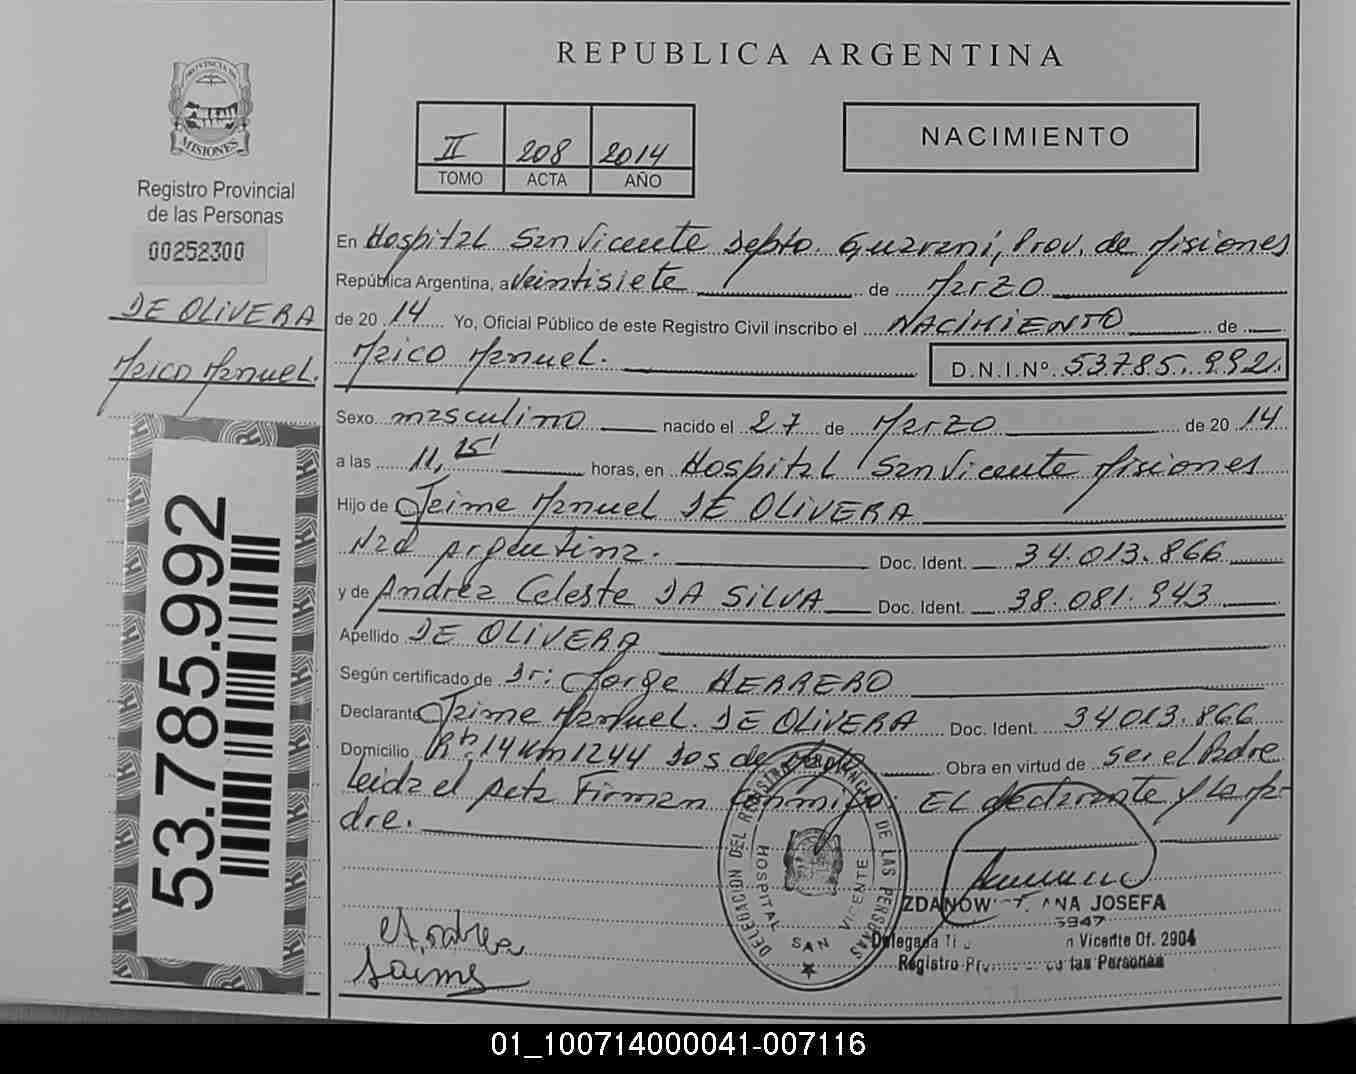 REPUBLICA ARGENTINA
PROVINCIA DE
MISIONES
Registro Provincial
de las Personas
00252300
DE OLIVERA
Maico Manuel.
53.785.992
II 208 2014
TOMO ACTA AÑO
NACIMIENTO
En Hospital San Vicente Depto. Guarani, Prov. de Misiones
República Argentina, a Veintisiete de Marzo
de 20 14 Yo, Oficial Público de este Registro Civil inscribo el NACIMIENTO de
Maico Manuel. D.N.I.Nº 53.785.992.
Sexo masculino nacido el 27 de Marzo de 20 14
a las 11,25' horas, en Hospital San Vicente Misiones
Hijo de Jaime Manuel DE OLIVERA
Nad Argentina. Doc. Ident. 34.013.866
y de Andrea Celeste DA SILVA Doc. Ident. 38.081.943
Apellido DE OLIVERA
Según certificado de Dr: Jorge HERRERO
Declarante Jaime Manuel DE OLIVERA Doc. Ident. 34013.866
Domicilio Rta 14 Km 1244 Dos de Mayo Obra en virtud de ser el Padre
Leida el Acta Firman conmigo: EL declarante y la Ma-
dre.
DELEGACION DEL REGISTRO PROVINCIAL DE LAS PERSONAS
HOSPITAL SAN VICENTE
ANA JOSEFA
Delegada Vicente Of. 2904
Registro las Personas
Andrea
Jaime
01_100714000041-007116